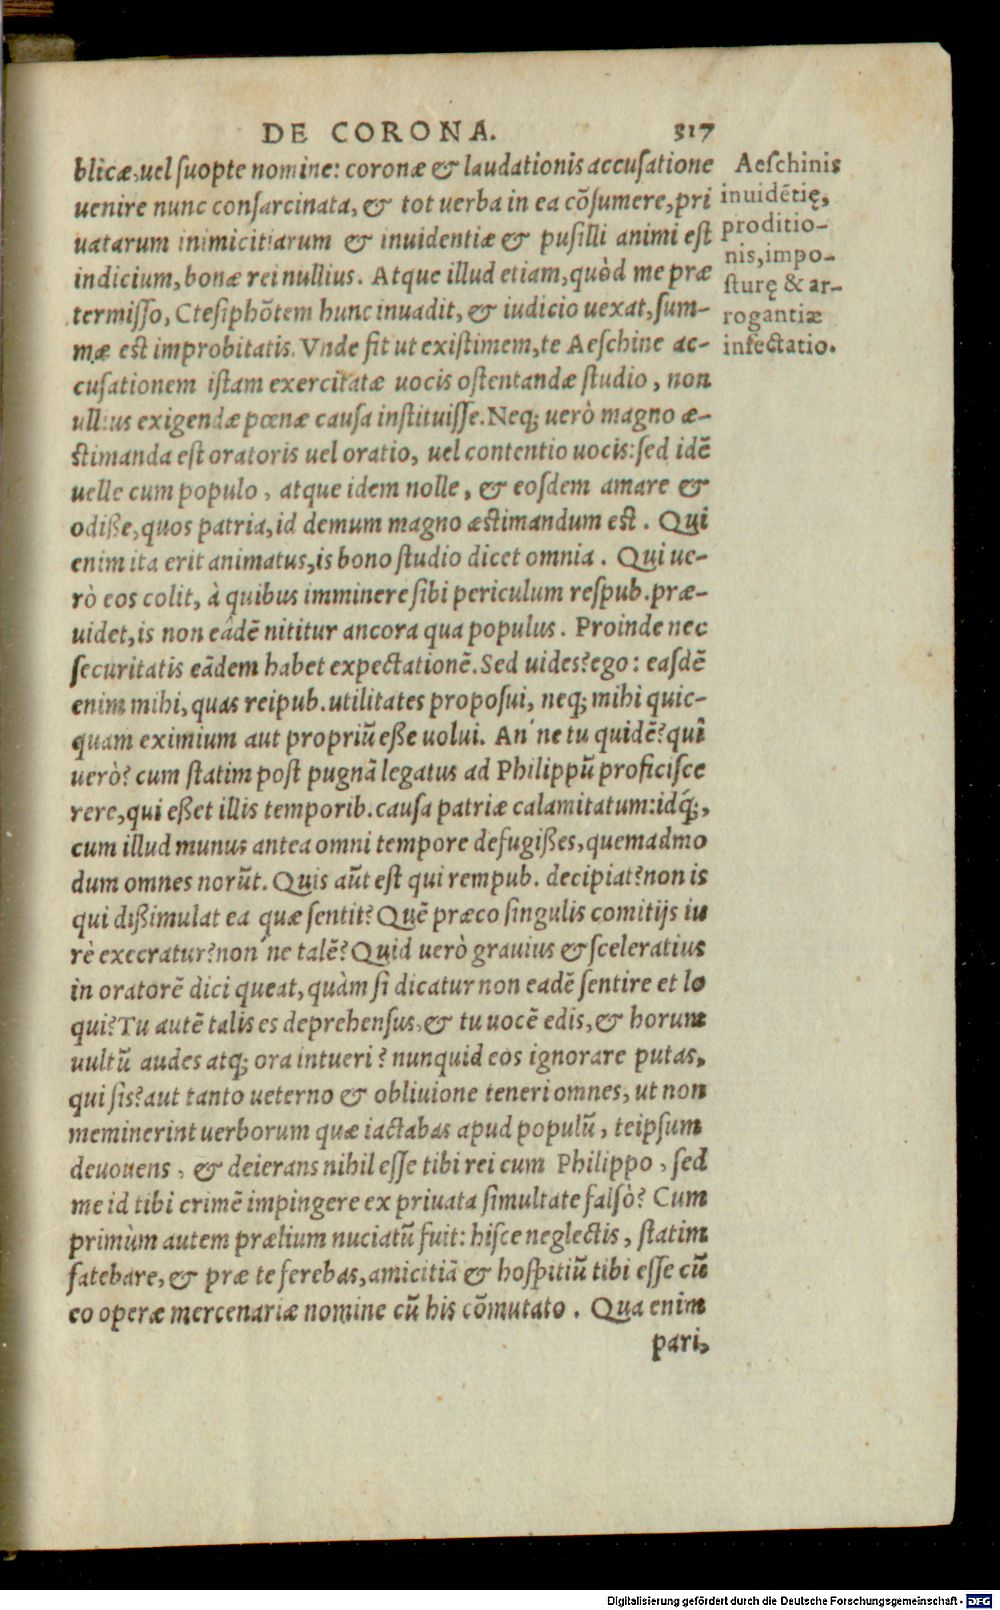 DE CORONA. 317
blicæ, uel ſuopte nomine: coronæ & laudationis accuſatione
uenire nunc conſarcinata, & tot uerba in ea cõſumere, pri
uatarum inimicitiarum & inuidentiæ & puſilli animi eſt
indicium, bonæ rei nullius. Atque illud etiam, quòd me præ
termiſſo, Cteſiphõtem hunc inuadit, & iudicio uexat, ſum-
mæ eſt improbitatis. Vnde fit ut exiſtimem, te Aeſchine ac-
cuſationem iſtam exercitatæ uocis oſtentandæ ſtudio, non
ullius exigendæ pœnæ cauſa inſtituiſſe. Neq; uerò magno æ-
ſtimanda eſt oratoris uel oratio, uel contentio uocis: ſed idẽ
uelle cum populo, atque idem nolle, & eoſdem amare &
odiße, quos patria, id demum magno æſtimandum eſt. Qui
enim ita erit animatus, is bono ſtudio dicet omnia. Qui ue-
rò eos colit, à quibus imminere ſibi periculum reſpub. præ-
uidet, is non eâdẽ nititur ancora qua populus. Proinde nec
ſecuritatis eãdem habet expectationẽ. Sed uides? ego: eaſdẽ
enim mihi, quas reipub. utilitates propoſui, neq; mihi quic-
quam eximium aut propriũ eße uolui. An ́ne tu quidẽ? quî
uerò? cum ſtatim poſt pugnã legatus ad Philippũ proficiſce
rere, qui eßet illis temporib. cauſa patriæ calamitatum: idq́;,
cum illud munus antea omni tempore defugißes, quemadmo
dum omnes norũt. Quis aũt eſt qui rempub. decipiat? non is
qui dißimulat ea quæ ſentit? Quẽ præco ſingulis comitijs iu
rè execratur? non ́ne talẽ? Quid uerò grauius & ſceleratius
in oratorẽ dici queat, quàm ſi dicatur non eadẽ ſentire et lo
qui? Tu autẽ talis es deprehenſus, & tu uocẽ edis, & horum
uultũ audes atq; ora intueri? nunquid eos ignorare putas,
qui ſis? aut tanto ueterno & obliuione teneri omnes, ut non
meminerint uerborum quæ iactabas apud populũ, teipſum
deuouens, & deierans nihil eſſe tibi rei cum Philippo, ſed
me id tibi crimẽ impingere ex priuata ſimultate falſò? Cum
primùm autem prælium nũciatũ fuit: hiſce neglectis, ſtatim
fatebare, & præ te ferebas, amicitiã & hoſpitiũ tibi eſſe cũ
eo operæ mercenariæ nomine cũ his cõmutato. Qua enim
pari,
Aeſchinis
inuidẽtię,
proditio-
nis, impo-
ſturę & ar-
rogantiæ
inſectatio.
Digitalisierung gefördert durch die Deutsche Forschungsgemeinschaft - DFG